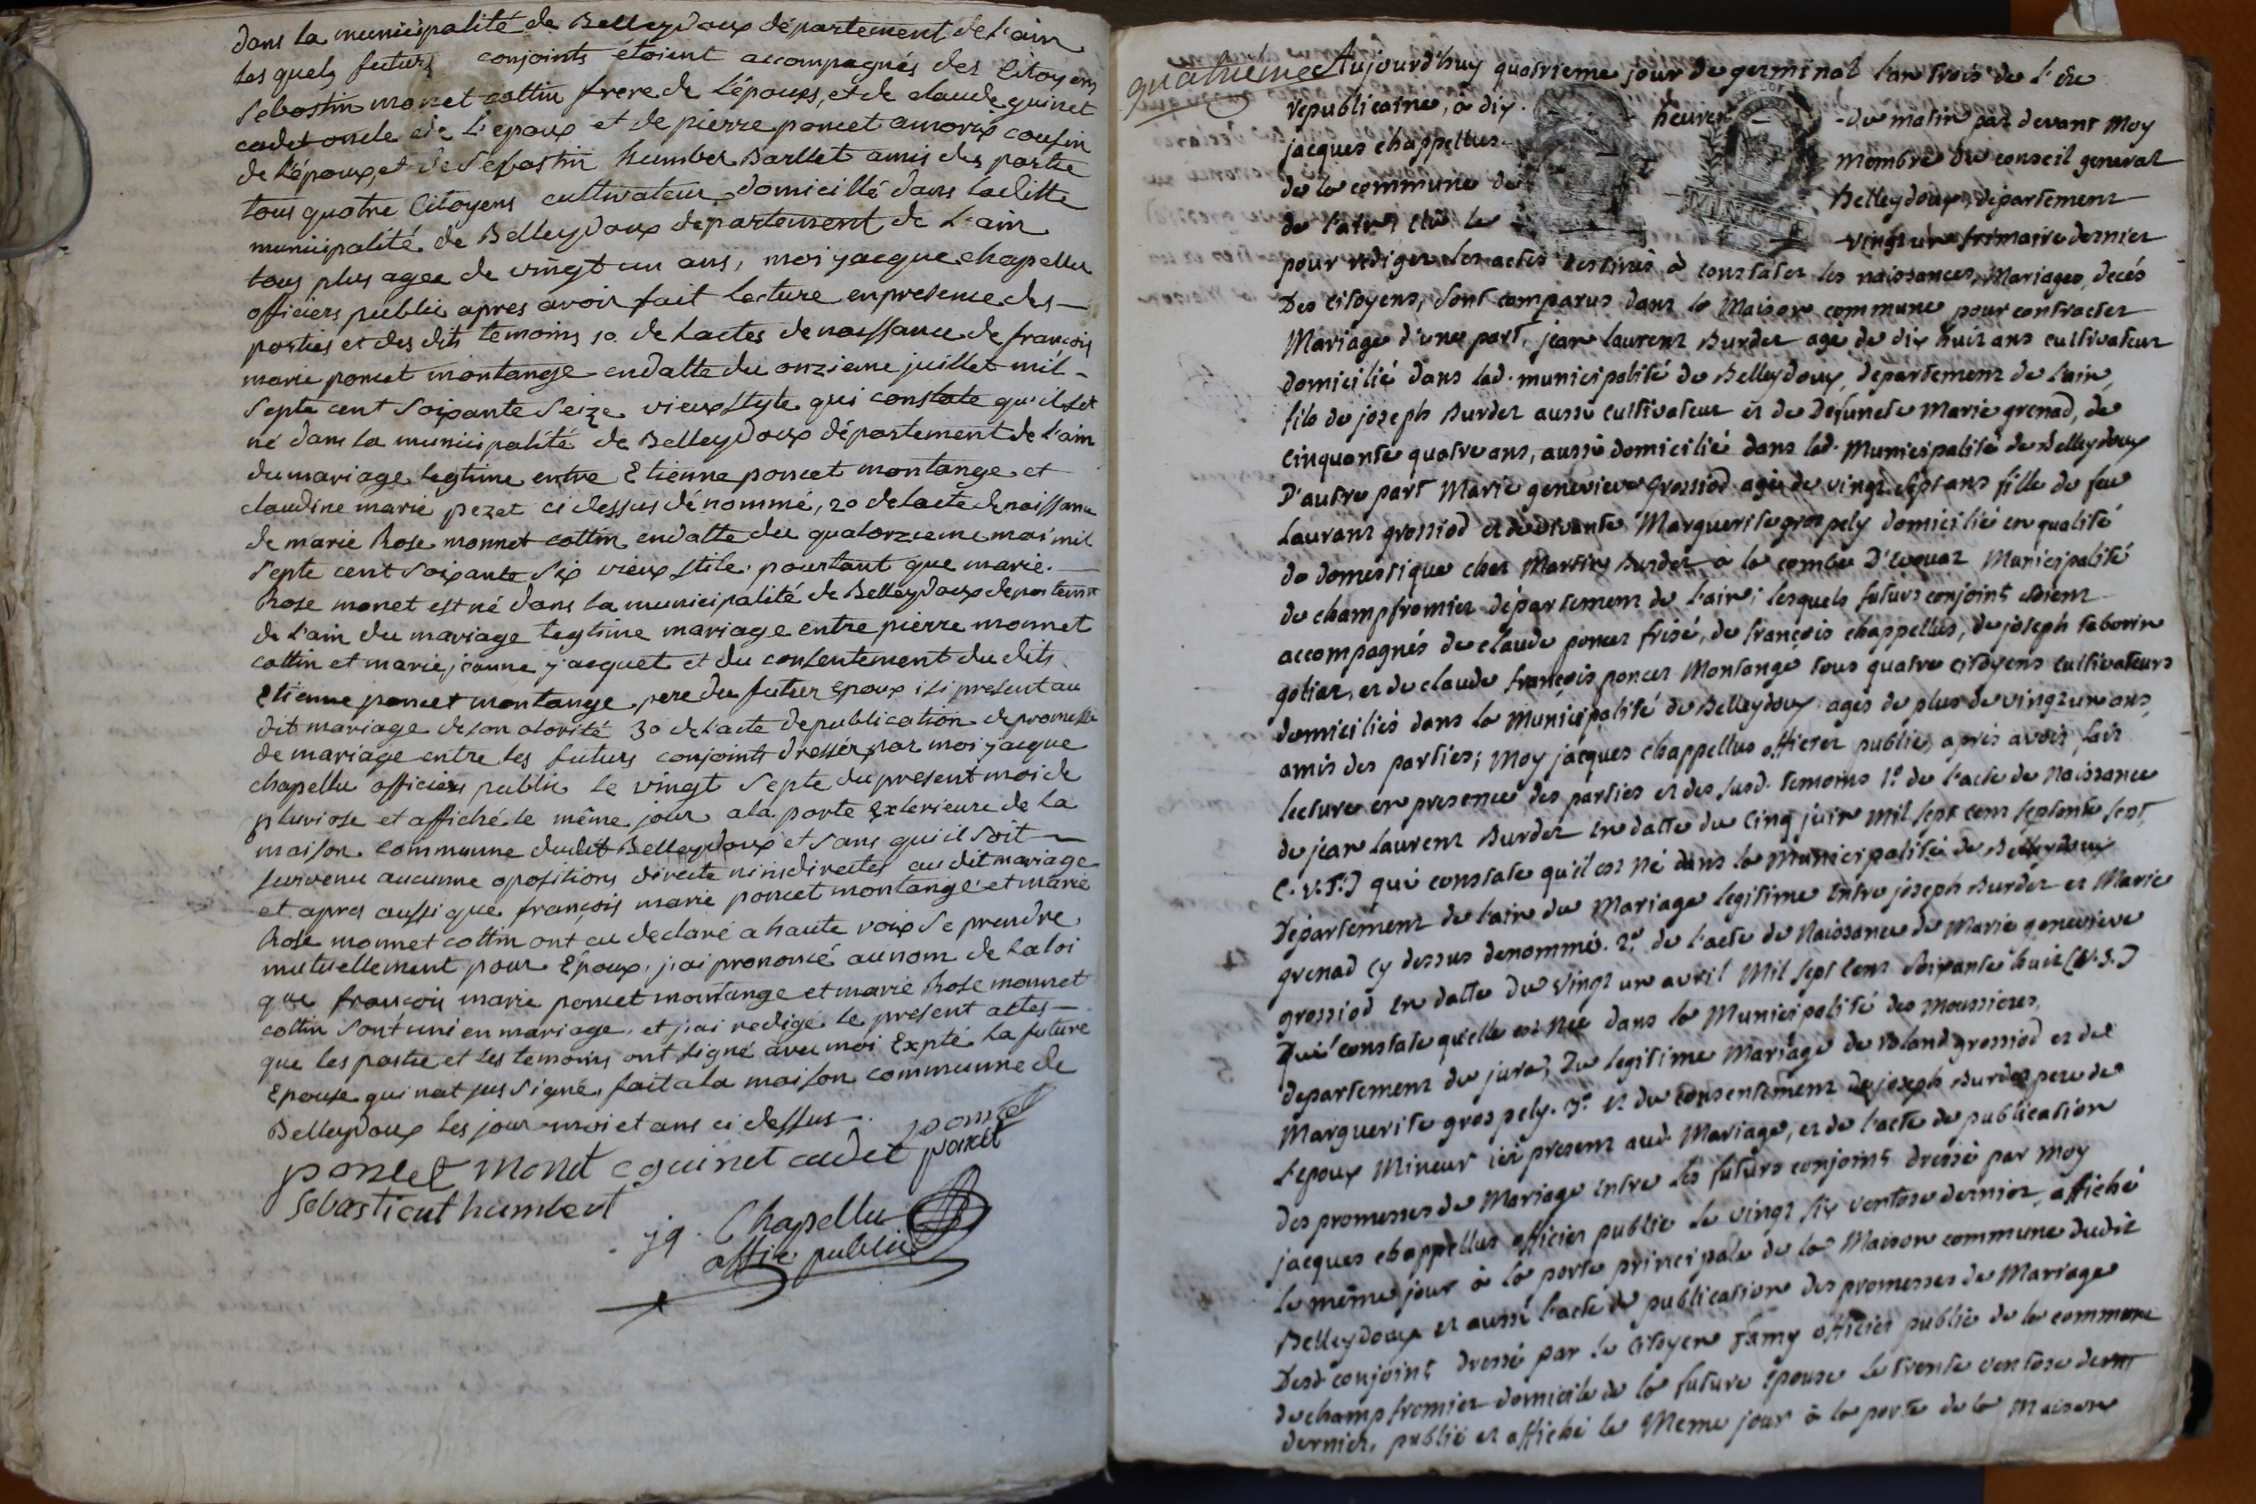 dans la municipalité de Belleydoux département de l'ain
les quels futurs conjoints étoient accompagnés des Citoyens
Sebastin monet cottin frere de l'épouxs, et de claude guinet
cadet oncle de L'epoux et de pierre poncet amorix cousin
de l'époux, et de Sebastin humber Barllet amis des partie
tous quatre Citoyens cultivateur domicillé dans laditte
municipalité de Belleydoux departement de L'ain
tous plus agee de vingt un ans, moi jacque chapellu
officiers public apres avoir fait lecture en presence des
parties et des dits temoins 1o. de Lactes de naissance de francois
marie poncet montange en datte du onzieme juillet mil
Septe cent Soixante Seize vieux style qui constate qu'il set
né dans la municipalité de Belleydoux département de l'ain
du mariage legtime entre Etienne poncet montange et
claudine marie pezet ci dessus dénommé, 2o de lacte de naissance
de marie Rose monnet cottin en datte du quatorzieme mai mil
Septe cent Soixante Six vieux stile. pourtant que marie
Rose monet est né dans la municipalité de Belleydoux departemt
de l'ain du mariage legtime mariage entre pierre monnet
cottin et marie jeanne jacquet et du consentement du dits
Etienne poncet montange, pere du futur epoux isi present au
dit mariage de son otorité 3o de l'acte de publication de promesse
de mariage entre les futurs conjoints dressér par moi jacque
chapellu officiers public le vingt Septe du present moi de
pluviose et affiché le même jour a la porte Exterieure de la
maison commune dudit Belleydoux et sans qui il soit
survenu aucunne opositions directe ni indirectes au dit mariage
et apres aussi que françois marie poncet montange et marie
Rose monnet cottin ont eu declaré a haute voix Se prendre
mutuellement pour Époux, j'ai prononcé au nom de la loi
que francois marie poncet montange et marie Rose monnet
cottin sont uni en mariage. et j'ai redigé le present attes
que les partie et les temoins ont signé avec moi Expté La future
Epouse qui nat sus signé, fait a la maison communne de
Belleydoux les jour moi et ans ci dessus.
poncet monet c guinet cadet poncet
poncet
Sebastient humbert
jq. Chapellu
offic. public
quatrieme Aujourd'huy quatrieme jour de germinal l'an trois de l'ere
republicaine, à dix heures du matin par devant Moy
jacques chappellus membre du conseil general
de la commune de Belleydoux, département
de l'ain, élu le vingt un frimaire dernier
pour rediger les actes destinés à constater les naissances, Mariages, decés
Des citoyens, sont comparus dans la Maison commune pour contracter
Mariage d'une part, jean laurent Burdet agé de dix huit ans cultivateur
domicilié dans lad. municipalité de Belleydoux, departement de l'ain,
fils de joseph Burdet aussi cultivateur et de Defuncte Marie grenad, de
cinquante quatre ans, aussi domicilié dans lad. Municipalité de Belleydoux
D'autre part Marie genevieve Grossiod agée de vingt sept ans fille de feu
Laurant grossiod et de vivante Marguerite gros pely domicilié en qualité
de domestique chez Martin Burdet à la combe D'evuaz Municipalité
de champfromier departement de l'ain; lesquels futurs conjoint etoient
accompagnés de claude poncet frisé, de françois chappellus, de joseph taborin
gotiar, et de claude françois poncet Montange tous quatre citoyens cultivateurs
domiciliés dans la Municipalité de Belleydoux agés de plus de vingt un ans,
amis des parties; Moy jacques chappellus officier public, après avoir fait
lecture en presence des parties et des susd. temoins 1o. de l'acte de Naissance
de jean laurent Burdet en datte du cinq juin Mil sept cent septente sept
(V.S.) qui constate qu'il est Né dans la Municipalité de Belleydoux
Departement de l'ain du Mariage legitime entre joseph Burdet et Marie
grenad cy dessus denommés. 2o. de l'acte de Naissance de Marie genevieve
grossiod en datte du vingt un avril Mil sept cent soixante huit (V.S.)
Qui constate qu'elle est Née dans la Municipalité des Moussieres,
departement du jura, du legitime Mariage de Roland grossiod et de
Marguerite gros pely. 3o. et du consentement de joseph Burdet pere de
L'epoux Mineur ici present aud. Mariage, et de l'acte de publication
des promesses de Mariage entre les futurs conjoint dressé par moy
jacques chappellus officier public le vingt six ventose dernier, affiché
le même jour à la porte principale de la Maison commune dudit
Belleydoux et aussi l'acte de publication des promesses de Mariage
Desd. conjoint dressé par le citoyen famy officier public de la commune
de champfromier domicile de la future épouse le trente ventose
dernier, publié et affiché le Meme jour à la porte de la Maison